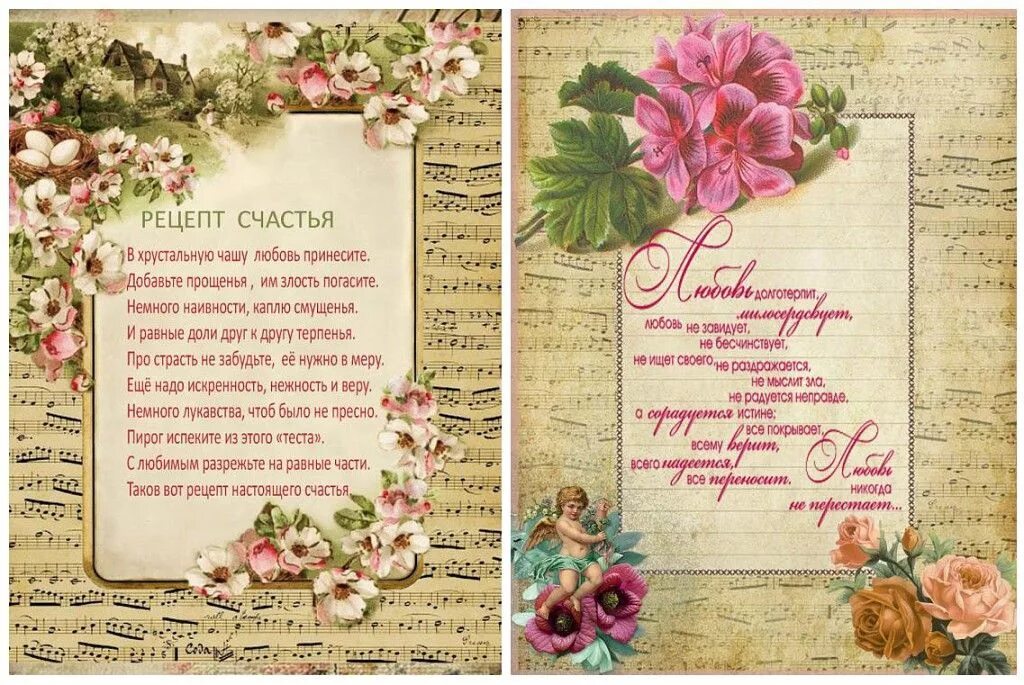 РЕЦЕПТ СЧАСТЬЯ
В хрустальную чашу любовь принесите.
Добавьте прощенья , им злость погасите.
Немного наивности, каплю смущенья.
И равные доли друг к другу терпенья.
Про страсть не забудьте, её нужно в меру.
Ещё надо искренность, нежность и веру.
Немного лукавства, чтоб было не пресно.
Пирог испеките из этого «теста».
С любимым разрежьте на равные части.
Таков вот рецепт настоящего счастья
Coda
Любовь долготерпит,
милосердсвует,
любовь не завидует,
не бесчинствует,
не ищет своего, не раздражается,
не мыслит зла,
не радуется неправде,
а сорадуется истине;
все покрывает,
всему верит,
всего надеется,
все переносит.
Любовь
никогда
не перестает...